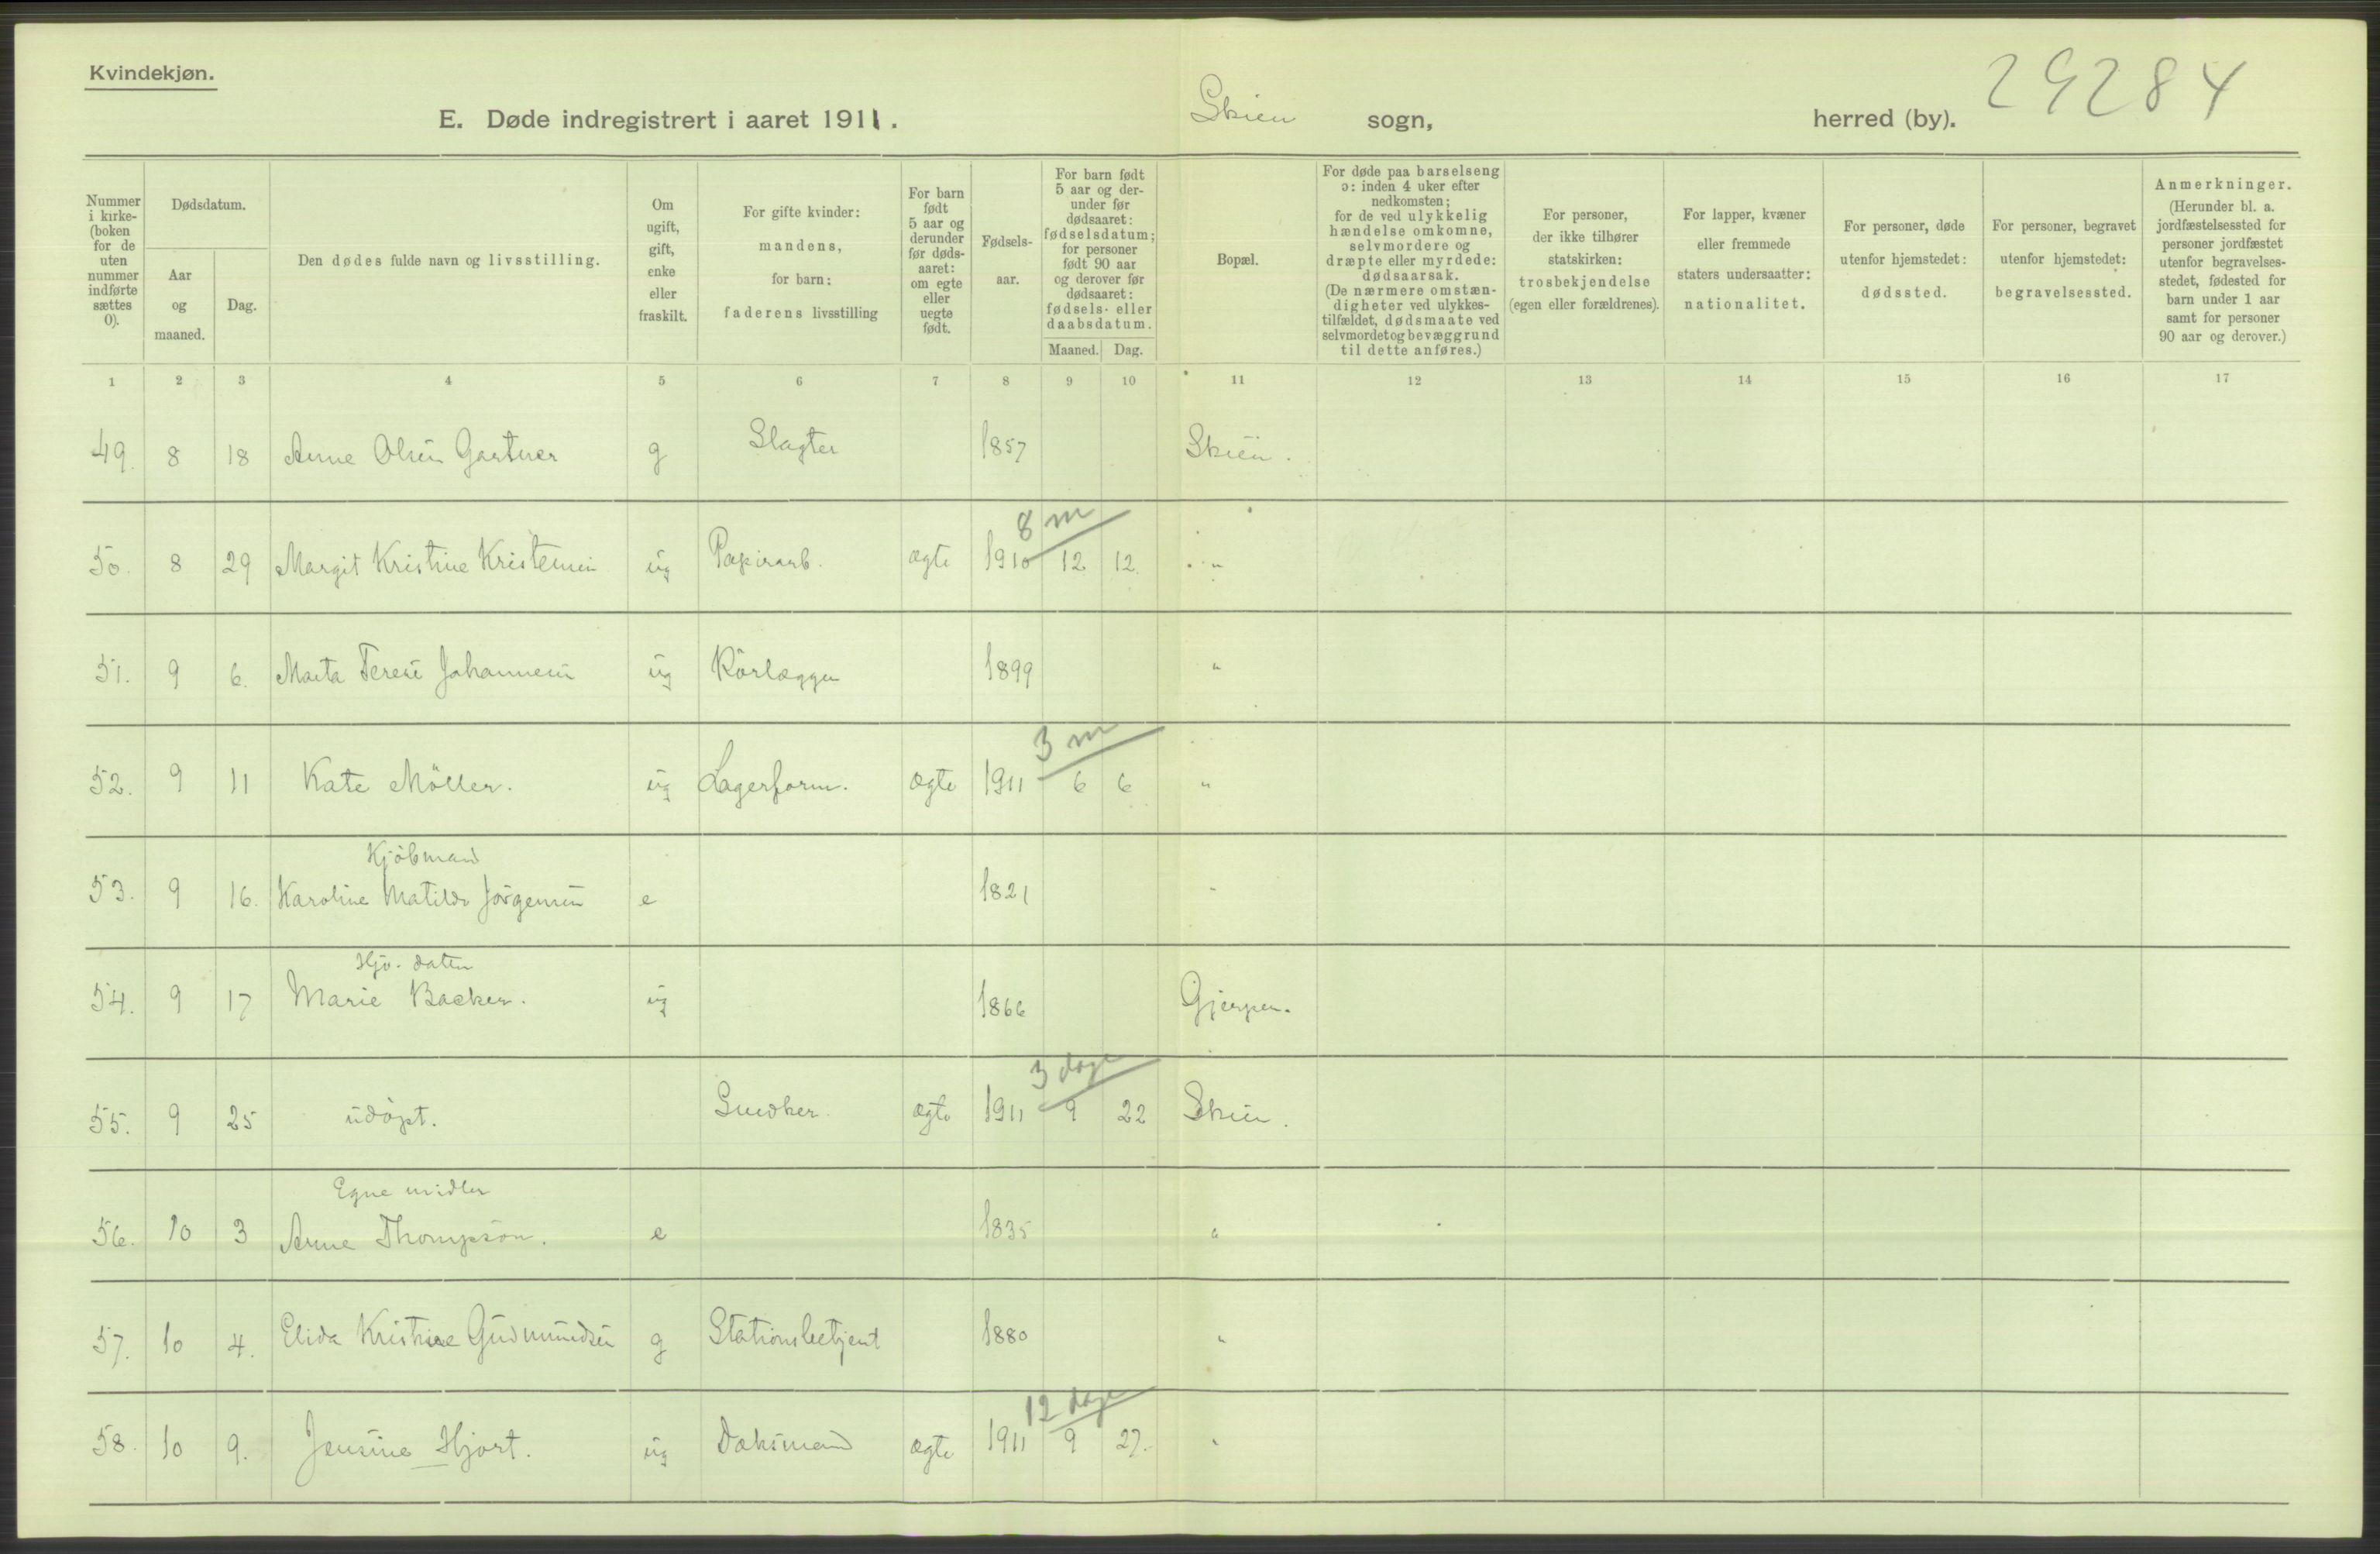 Kvindekjøn.
E. Døde indregistrert i aaret 1911. Skien sogn, herred (by). 29284
Nummer i kirke- (boken for de uten nummer indførte sættes 0).
Dødsdatum.
Aar og maaned.
Dag.
Den dødes fulde navn og livsstilling.
Om ugift, gift, enke eller fraskilt.
For gifte kvinder: mandens, for barn: faderens livsstilling
For barn født 5 aar og derunder før døds- aaret: om egte eller uegte født.
Fødsels- aar.
For barn født 5 aar og der- under før dødsaaret: fødselsdatum; for personer født 90 aar og derover før dødsaaret: fødsels- eller daabsdatum.
Maaned. Dag.
Bopæl.
For døde paa barselseng ɔ: inden 4 uker efter nedkomsten; for de ved ulykkelig hændelse omkomne, selvmordere og dræpte eller myrdede: dødsaarsak. (De nærmere omstæn- digheter ved ulykkes- tilfældet, dødsmaate ved selvmordet og bevæggrund til dette anføres.)
For personer, der ikke tilhører statskirken: trosbekjendelse (egen eller forældrenes).
For lapper, kvæner eller fremmede staters undersaatter: nationalitet.
For personer, døde utenfor hjemstedet: dødssted.
For personer, begravet utenfor hjemstedet: begravelsessted.
Anmerkninger. (Herunder bl. a. jordfæstelsessted for personer jordfæstet utenfor begravelses- stedet, fødested for barn under 1 aar samt for personer 90 aar og derover.)
1 2 3 4 5 6 7 8 9 10 11 12 13 14 15 16 17
49. 8 18 Anne Olsen Gartner g Slagter 1857 Skien.
8 m
50. 8 29 Margit Kristine Kristensen ug Papirarb. ægte 1910 12 12 "
51. 9 6. Marta Terese Johannesen ug Rörlægger 1899 "
3 m
52. 9 11 Kate Möller. ug Lagerform. ægte 1911 6 6 "
Kjöbmand
53. 9 16. Karoline Matilde Jörgensen e 1821 "
54. 9 17 Marie Backer. ug 1866 Gjerpen.
3 dage
55. 9 25 udöpt. Snedker. ægte 1911 9 22 Skien.
Egne midler
56. 10 3 Anne Thompson. e 1835 "
57. 10 4. Elida Kristine Gudmundsen g Stationsbetjent 1880 "
12 dage
58. 10 9. Jensine Hjort. ug ægte 1911 9 27. "